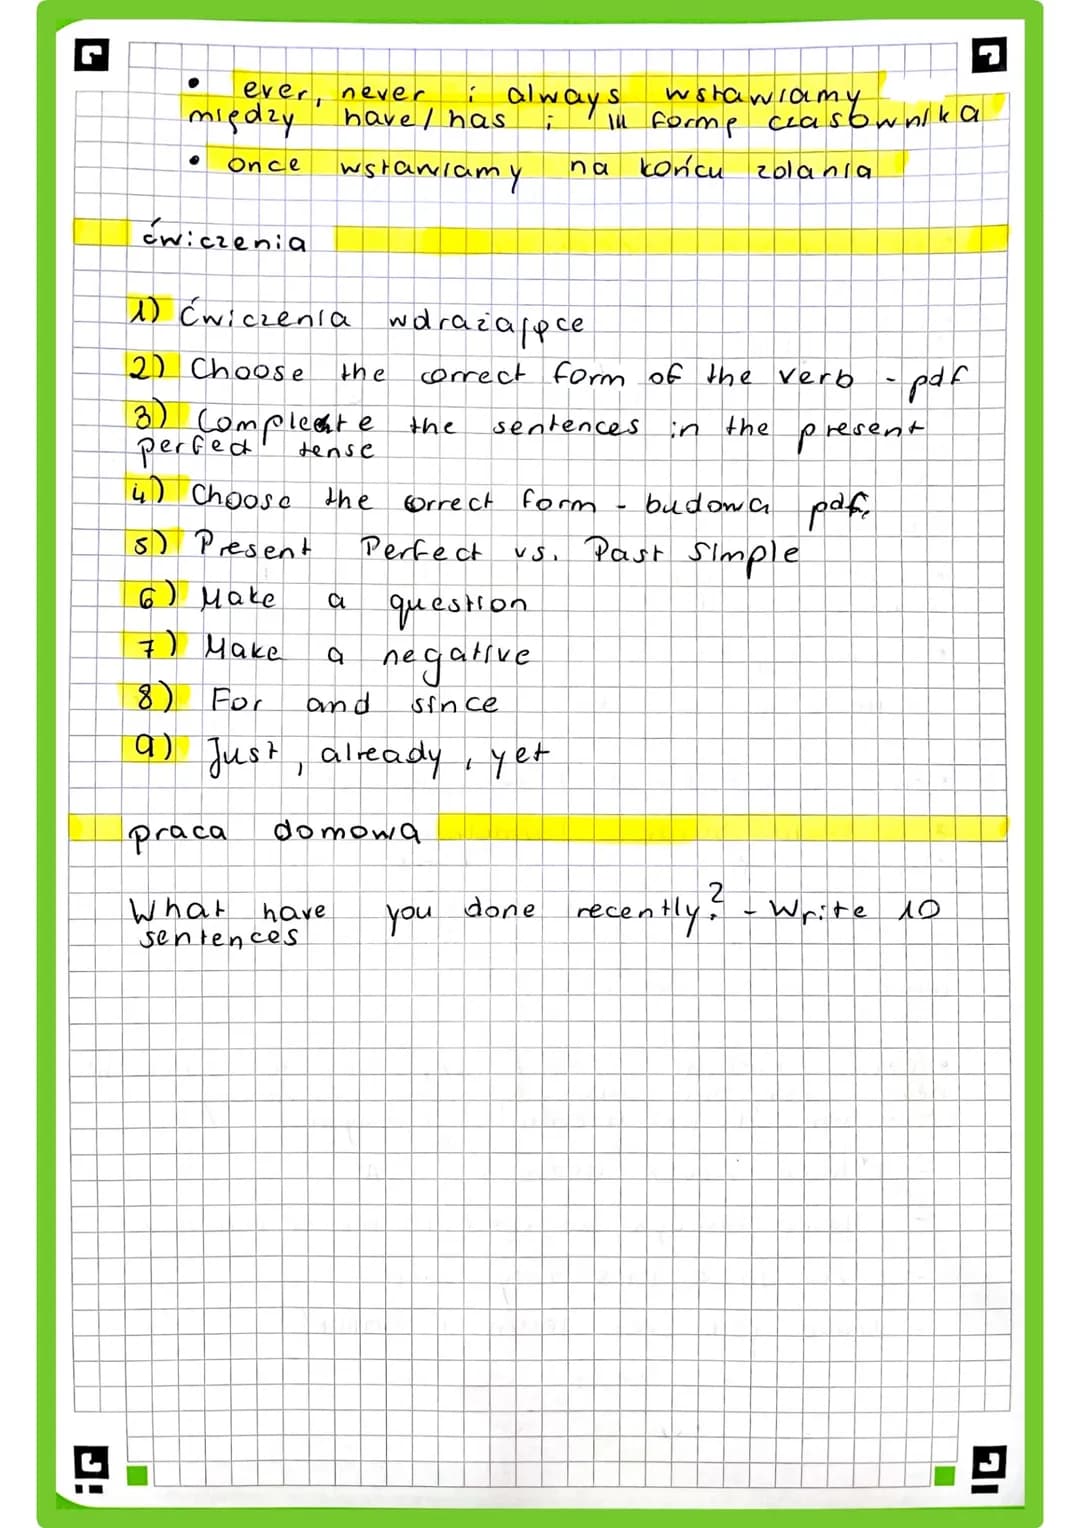 • ever, never i always wstawiamy
między have/has i III formę czasownika
• once wstawiamy na końcu zdania
ćwiczenia
1) Ćwiczenia wdrażające
2) Choose the correct form of the verb - pdf
3) Compleate the sentences in the present
perfect tense
4) Choose the correct form - budowa pdf.
5) Present Perfect vs. Past Simple
6) Make a question
7) Make a negative
8) For and since
9) Just, already, yet
praca domowa
What have you done recently? - Write 10
sentences